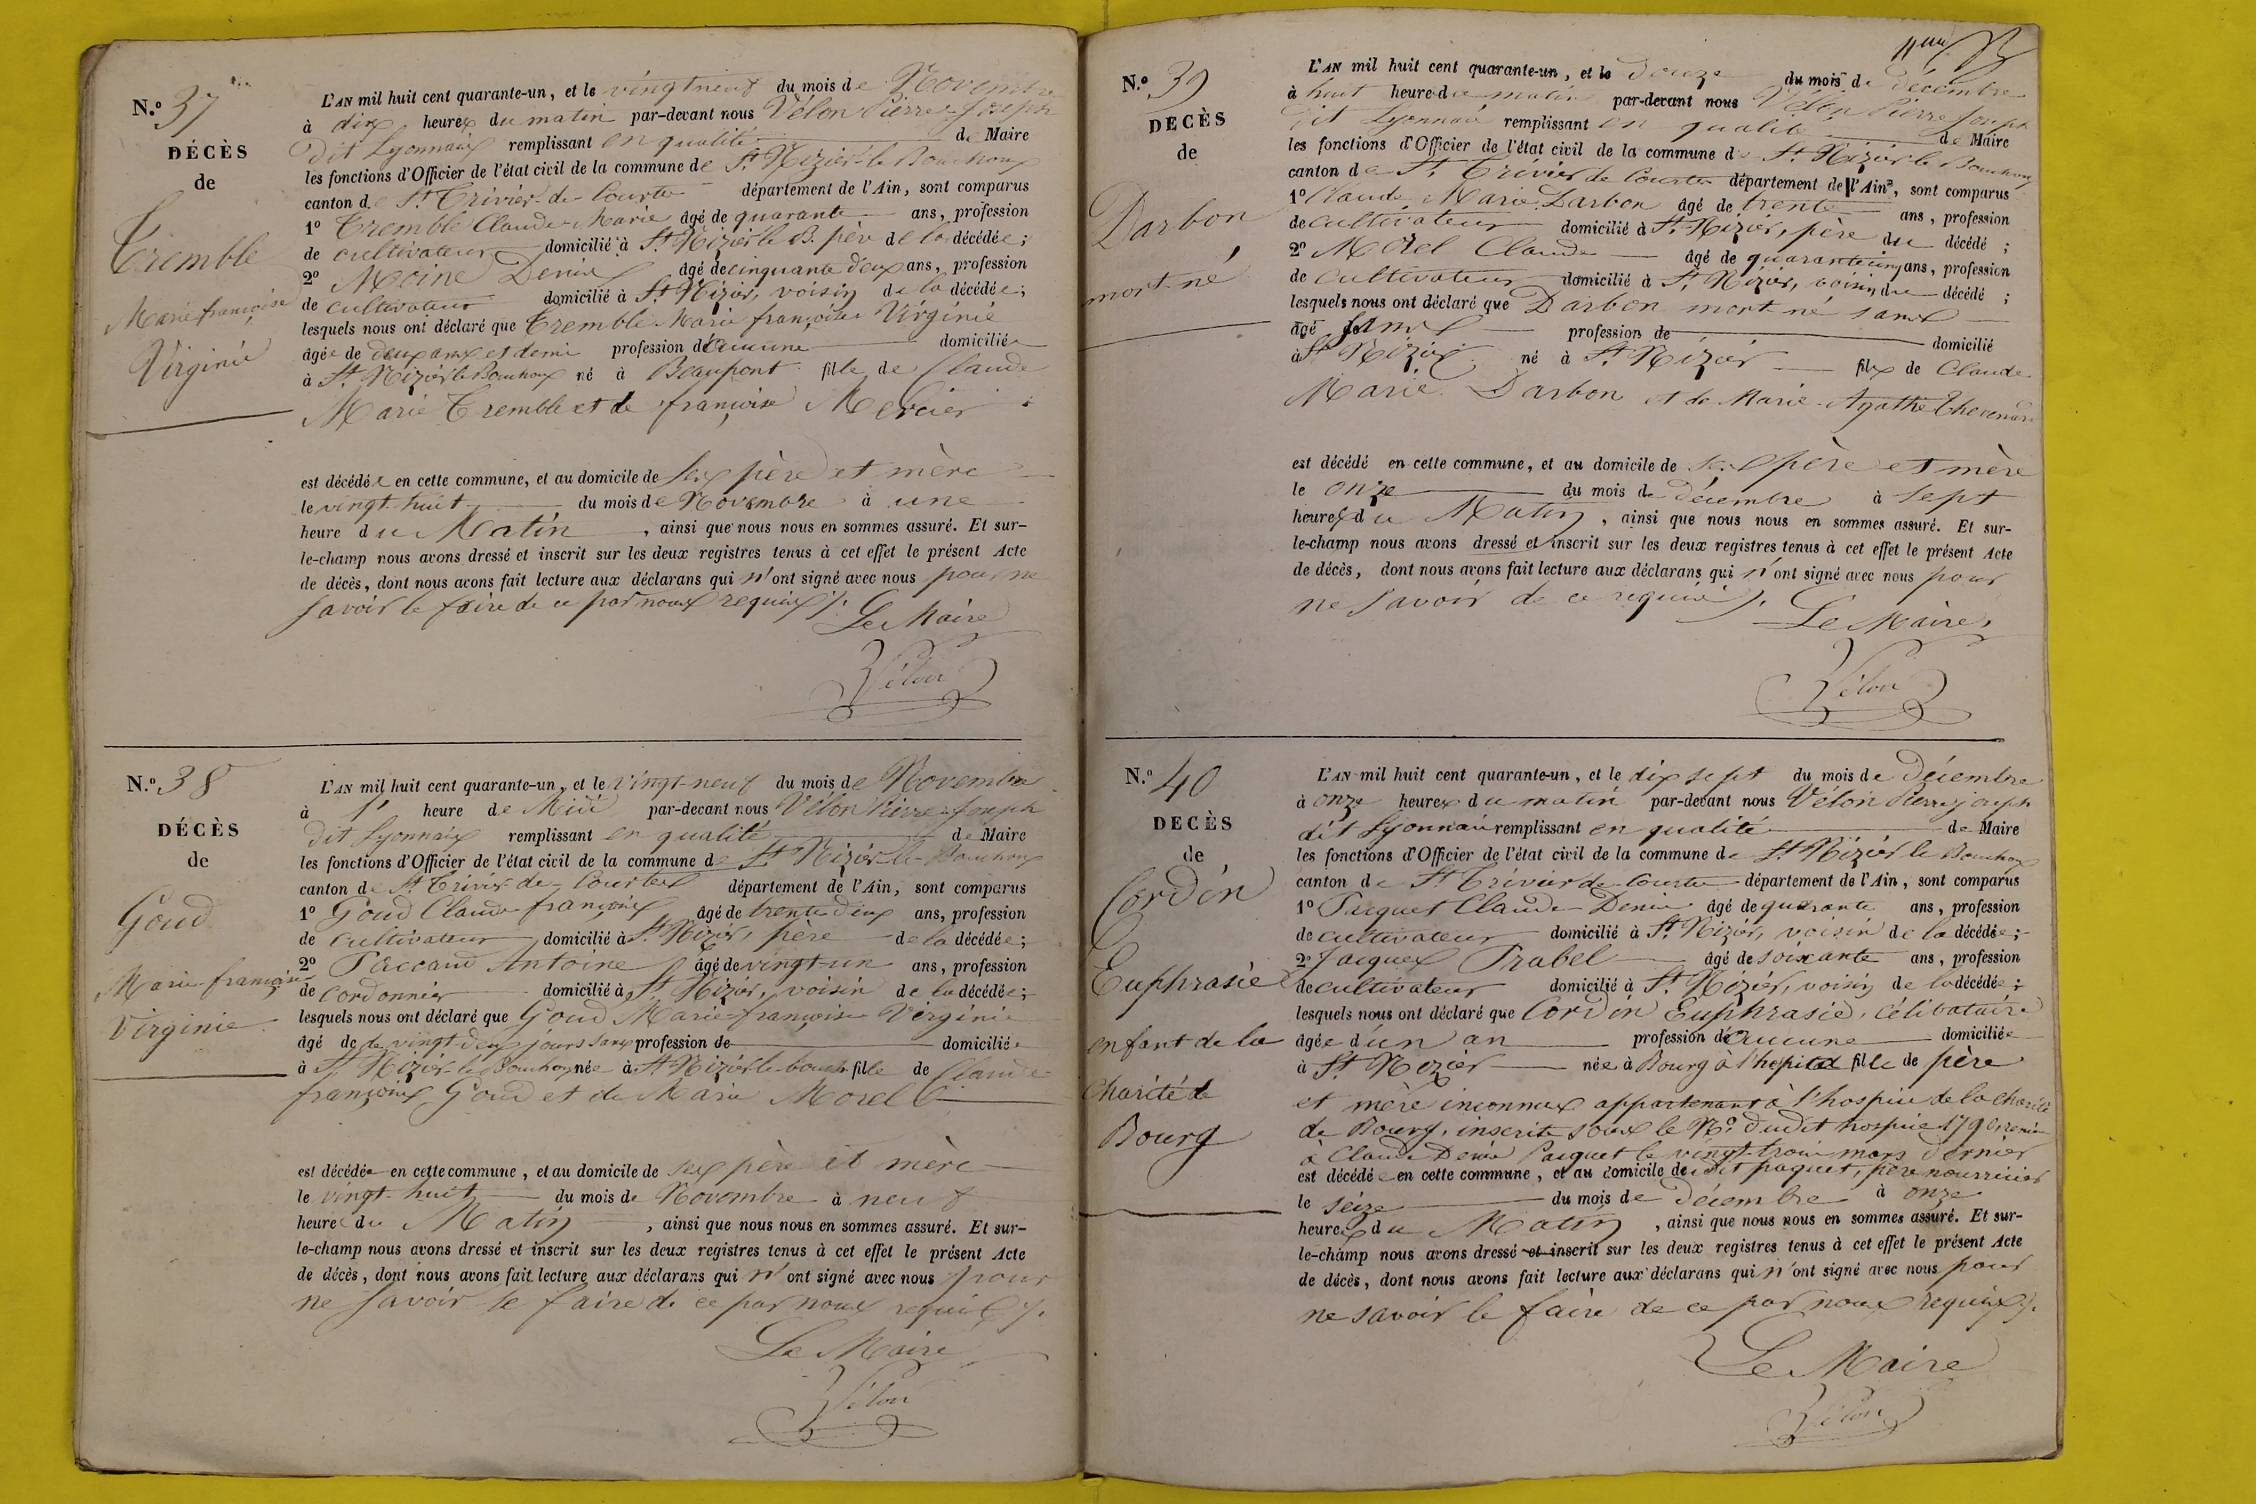 N.o 37
DÉCÈS
de
Tremble
Marie françoise
Virginie
L'AN mil huit cent quarante-un, et le vingt neuf du mois de Novembre
à dix heures du matin par-devant nous Vélon Pierre Joseph
dit Lyonnais remplissant en qualité de Maire
les fonctions d'Officier de l'état civil de la commune de St Nizier le Bouchoux
canton de St Trivier de Courtes département de l'Ain, sont comparus
1o Tremble Claude Marie âgé de quarante ans, profession
de cultivateur domicilié à St Nizier le B. père de la décédée;
2o Moine Denis âgé de cinquante deux ans, profession
de cultivateur domicilié à St Nizier, voisin de la décédée;
lesquels nous ont déclaré que Tremble Marie françoise Virginie
âgée de deux ans et demi profession d'aucune domiciliée
à St Nizier le Bouchoux né à Beaupont fille de Claude
Marie Tremble et de françoise Mercier
est décédée en cette commune, et au domicile de ses père et mère
le vingt huit du mois de Novembre à une
heure du Matin, ainsi que nous nous en sommes assuré. Et sur-
le-champ nous avons dressé et inscrit sur les deux registres tenus à cet effet le présent Acte
de décès, dont nous avons fait lecture aux déclarans qui n'ont signé avec nous pour ne
savoir le faire de ce par nous requis
Le Maire
Vélon
N.o 38
DÉCÈS
de
Goud
Marie françoise
Virginie
L'AN mil huit cent quarante-un, et le vingt-neuf du mois de Novembre
à heure de Midi par-devant nous Vélon Pierre Joseph
dit Lyonnais remplissant en qualité de Maire
les fonctions d'Officier de l'état civil de la commune de St Nizier le Bouchoux
canton de St Trivier de Courtes département de l'Ain, sont comparus
1o Goud Claude françois âgé de trente deux ans, profession
de cultivateur domicilié à St Nizier, père de la décédée;
2o Paccaud Antoine âgé de vingt-un ans, profession
de cordonnier domicilié à St Nizier, voisin de la décédée;
lesquels nous ont déclaré que Goud Marie françoise Virginie
âgé de de vingt deux jours sans profession de domiciliée
à St Nizier le Bouchoux née à St Nizier le bouch. fille de Claude
françois Goud et de Marie Morel
est décédée en cette commune, et au domicile de ses père et mère
le vingt-huit du mois de Novembre à neuf
heure du Matin, ainsi que nous nous en sommes assuré. Et sur-
le-champ nous avons dressé et inscrit sur les deux registres tenus à cet effet le présent Acte
de décès, dont nous avons fait lecture aux déclarans qui n'ont signé avec nous pour
ne savoir le faire de ce par nous requis
Le Maire
Vélon
N.o 39
DÉCÈS
de
Darbon
mort-né
L'AN mil huit cent quarante-un, et le douze du mois de décembre
à huit heures du matin par-devant nous Vélon Pierre Joseph
dit Lyonnais remplissant en qualité de Maire
les fonctions d'Officier de l'état civil de la commune de St Nizier le Bouchoux
canton de St Trivier de Courtes département de l'Ain, sont comparus
1o Claude Marie Darbon âgé de trente ans, profession
de cultivateur domicilié à St Nizier, père du décédé;
2o Morel Claude âgé de quarante cinq ans, profession
de cultivateur domicilié à St Nizier, voisin du décédé;
lesquels nous ont déclaré que Darbon mort-né sans
âgé profession de domicilié
à St Nizier né à St Nizier fils de Claude
Marie Darbon et de Marie Agathe Thevenard
est décédé en cette commune, et au domicile de ses père et mère
le onze du mois de décembre à sept
heures du Matin, ainsi que nous nous en sommes assuré. Et sur-
le-champ nous avons dressé et inscrit sur les deux registres tenus à cet effet le présent Acte
de décès, dont nous avons fait lecture aux déclarans qui n'ont signé avec nous pour
ne savoir de ce requis
Le Maire,
Vélon
N.o 40
DÉCÈS
de
Cordin
Euphrasie
enfant de la
Charité de
Bourg
L'AN mil huit cent quarante-un, et le dix sept du mois de Décembre
à onze heures du matin par-devant nous Vélon Pierre joseph
dit Lyonnais remplissant en qualité de Maire
les fonctions d'Officier de l'état civil de la commune de St Nizier le Bouchoux
canton de St Trivier de Courtes département de l'Ain, sont comparus
1o Pacquet Claude Denis âgé de quarante ans, profession
de cultivateur domicilié à St Nizier, voisin de la décédée;
2o Jacques Prabel âgé de soixante ans, profession
de cultivateur domicilié à St Nizier, voisin de la décédée;
lesquels nous ont déclaré que Cordin Euphrasie, célibataire
âgée d'un an profession d'aucune domiciliée
à St Nizier née à Bourg à l'hopital fille de père
et mère inconnus appartenant à l'hospice de la charité
de Bourg, inscrite sous le No. dudit hospice 1790, remise
à Claude Denis Pacquet le vingt-trois mars dernier
est décédée en cette commune, et au domicile de dit paquet, père nourricier
le seize du mois de décembre à onze
heures du Matin, ainsi que nous nous en sommes assuré. Et sur-
le-champ nous avons dressé et inscrit sur les deux registres tenus à cet effet le présent Acte
de décès, dont nous avons fait lecture aux déclarans qui n'ont signé avec nous pour
ne savoir le faire de ce par nous requis
Le Maire
Vélon